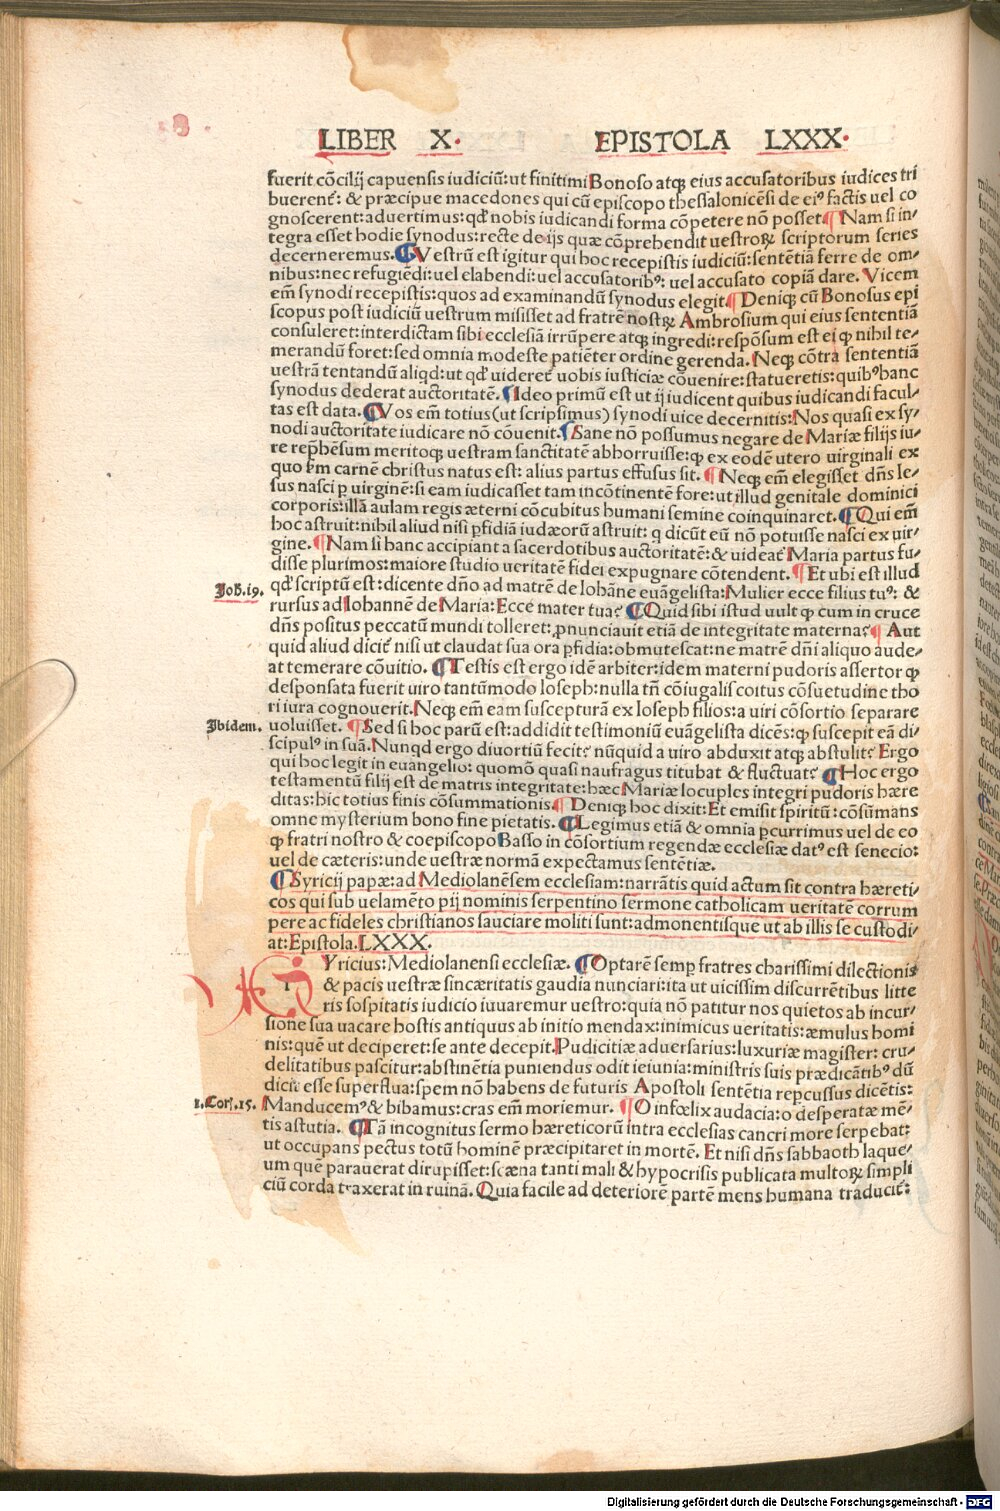 LIBER X. EPISTOLA LXXX.
fuerit cõcilij capuensis iudiciũ: ut finitimi Bonoso atqȝ eius accusatoribus iudices tri
buerent᷑: & præcipue macedones qui cũ episcopo thessalonicẽsi de eiꝰ factis uel co
gnoscerent: aduertimus: qd̕ nobis iudicandi forma cõpetere nõ posset. ¶ Nam si in-
tegra esset hodie synodus: recte de ijs quæ cõprehendit uestroꝝ scriptorum series
decerneremus. ¶ Vestrũ est igitur qui hoc recepistis iudiciũ: sentẽtiã ferre de om-
nibus: nec refugiẽdi: uel elabendi: uel accusatoribꝰ: uel accusato copiã dare. Vicem
em̄ synodi recepistis: quos ad examinandũ synodus elegit. ¶ Deniqȝ cũ Bonosus epi
scopus post iudiciũ uestrum misisset ad fratrẽ nostꝝ Ambrosium qui eius sententiã
consuleret: interdictam sibi ecclesiã irrũpere atqȝ ingredi: respõsum est ei ꝙ nihil te-
merandũ foret: sed omnia modeste patiẽter ordine gerenda. Neqȝ cõtra sententiã
uestrã tentandũ aliqd: ut qd̕ uideret᷑ uobis iusticiæ cõuenire: statueretis: quibꝰ hanc
synodus dederat auctoritatẽ. ¶ Ideo primũ est ut ij iudicent quibus iudicandi facul-
tas est data. ¶ Vos em̄ totius (ut scripsimus) synodi uice decernitis: Nos quasi ex sy-
nodi auctoritate iudicare nõ cõuenit. ¶ Sane nõ possumus negare de Mariæ filijs iu-
re rep̄hẽsum meritoqȝ uestram sanctitatẽ abhorruisse: ꝙ ex eodẽ utero uirginali ex
quo ẜm carnẽ christus natus est: alius partus effusus sit. ¶ Neqȝ em̄ elegisset dñs Ie-
sus nasci ꝑ uirginẽ: si eam iudicasset tam incõtinentẽ fore: ut illud genitale dominici
corporis: illã aulam regis æterni cõcubitus humani semine coinquinaret. ¶ Qui em̄
hoc astruit: nihil aliud nisi ꝑfidiã iudæorũ astruit: q dicũt eũ nõ potuisse nasci ex uir-
gine. ¶ Nam si hanc accipiant a sacerdotibus auctoritatẽ: & uideat᷑ Maria partus fu-
disse plurimos: maiore studio ueritatẽ fidei expugnare cõtendent. ¶ Et ubi est illud
Joh. 19. qd̕ scriptũ est: dicente dño ad matrẽ de Iohãne euãgelista: Mulier ecce filius tuꝰ: &
rursus ad Iohannẽ de Maria: Ecce mater tua? ¶ Quid sibi istud uult ꝙ cum in cruce
dñs positus peccatũ mundi tolleret: ꝓnunciauit etiã de integritate materna? ¶ Aut
quid aliud dicit᷑ nisi ut claudat sua ora ꝑfidia: obmutescat: ne matrẽ dñi aliquo aude-
at temerare cõuitio. ¶ Testis est ergo idẽ arbiter: idem materni pudoris assertor ꝙ
desponsata fuerit uiro tantũmodo Ioseph: nulla tñ cõiugalis coitus cõsuetudine tho
ri iura cognouerit. Neqȝ em̄ eam susceptură ex Ioseph filios: a uiri cõsortio separare
Ibidem. uoluisset. ¶ Sed si hoc parũ est: addidit testimoniũ euãgelista dicẽs: ꝙ suscepit eã di-
scipulꝰ in suã. Nunqd ergo diuortiũ fecit? nũquid a uiro abduxit atqȝ abstulit? Ergo
qui hoc legit in euangelio: quomõ quasi naufragus titubat & fluctuat? ¶ Hoc ergo
testamentũ filij est de matris integritate: hæc Mariæ locuples integri pudoris hære
ditas: hic totius finis cõsummationis. ¶ Deniqȝ hoc dixit: Et emisit spiritũ: cõsũmans
omne mysterium bono fine pietatis. ¶ Legimus etiã & omnia ꝑcurrimus uel de eo
ꝙ fratri nostro & coepiscopo Basso in cõsortium regendæ ecclesiæ datꝰ est senecio:
uel de cæteris: unde uestræ normã expectamus sentẽtiæ.
¶ Syricij papæ: ad Mediolanẽsem ecclesiam: narrãtis quid actum sit contra hæreti-
cos qui sub uelamẽto pij nominis serpentino sermone catholicam ueritatẽ corrum
pere ac fideles christianos sauciare moliti sunt: admonentisque ut ab illis se custodi-
at: Epistola. LXXX.
SYricius: Mediolanensi ecclesiæ. ¶ Optarẽ semꝑ fratres charissimi dilectionis
& pacis uestræ sincæritatis gaudia nunciari: ita ut uicissim discurrẽtibus litte
ris sospitatis iudicio iuuaremur uestro: quia nõ patitur nos quietos ab incur-
sione sua uacare hostis antiquus ab initio mendax: inimicus ueritatis: æmulus homi
nis: quẽ ut deciperet: se ante decepit. Pudicitiæ aduersarius: luxuriæ magister: cru-
delitatibus pascitur: abstinẽtia puniendus odit ieiunia: ministris suis prædicãtibꝰ dũ
dicit᷑ esse superflua: spem nõ habens de futuris Apostoli sentẽtia repcussus dicẽtis:
1. Cor. 15. Manducemꝰ & bibamus: cras em̄ moriemur. ¶ O infœlix audacia: o desperatæ mẽ-
tis astutia. ¶ Tã incognitus sermo hæreticorũ intra ecclesias cancri more serpebat:
ut occupans pectus totũ hominẽ præcipitaret in mortẽ. Et nisi dñs sabbaoth laque-
um quẽ parauerat dirupisset: scæna tanti mali & hypocrisis publicata multoꝝ simpli
ciũ corda traxerat in ruinã. Quia facile ad deteriorẽ partẽ mens humana traducit᷑:
Digitalisierung gefördert durch die Deutsche Forschungsgemeinschaft - DFG